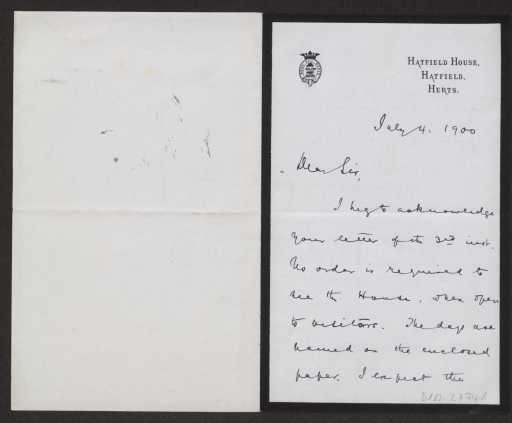 Hatfield House,
Hatfield,
Herts.
July 4. 1900
Dear Sir,
I beg to acknowledge
your letter of the 3rd inst.
No order is required to
see the House, when open
to visitors. The days are
named on the enclosed
paper. I expect the